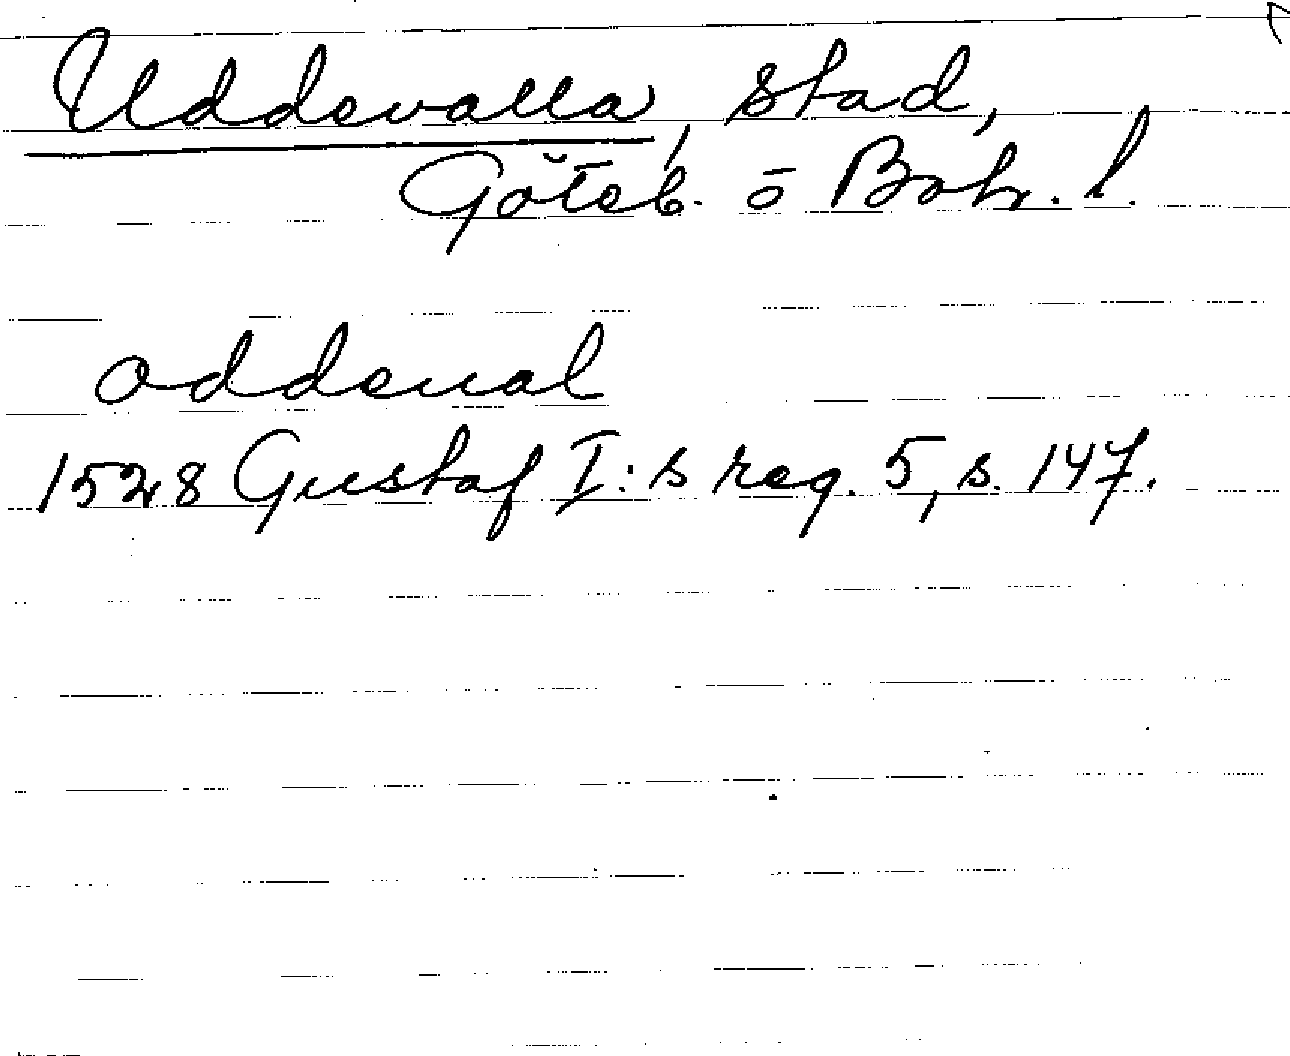 Uddevalla, stad,
Göteb. o Boh. l.
oddeual
1528 Gustaf I:s reg. 5, s. 147.